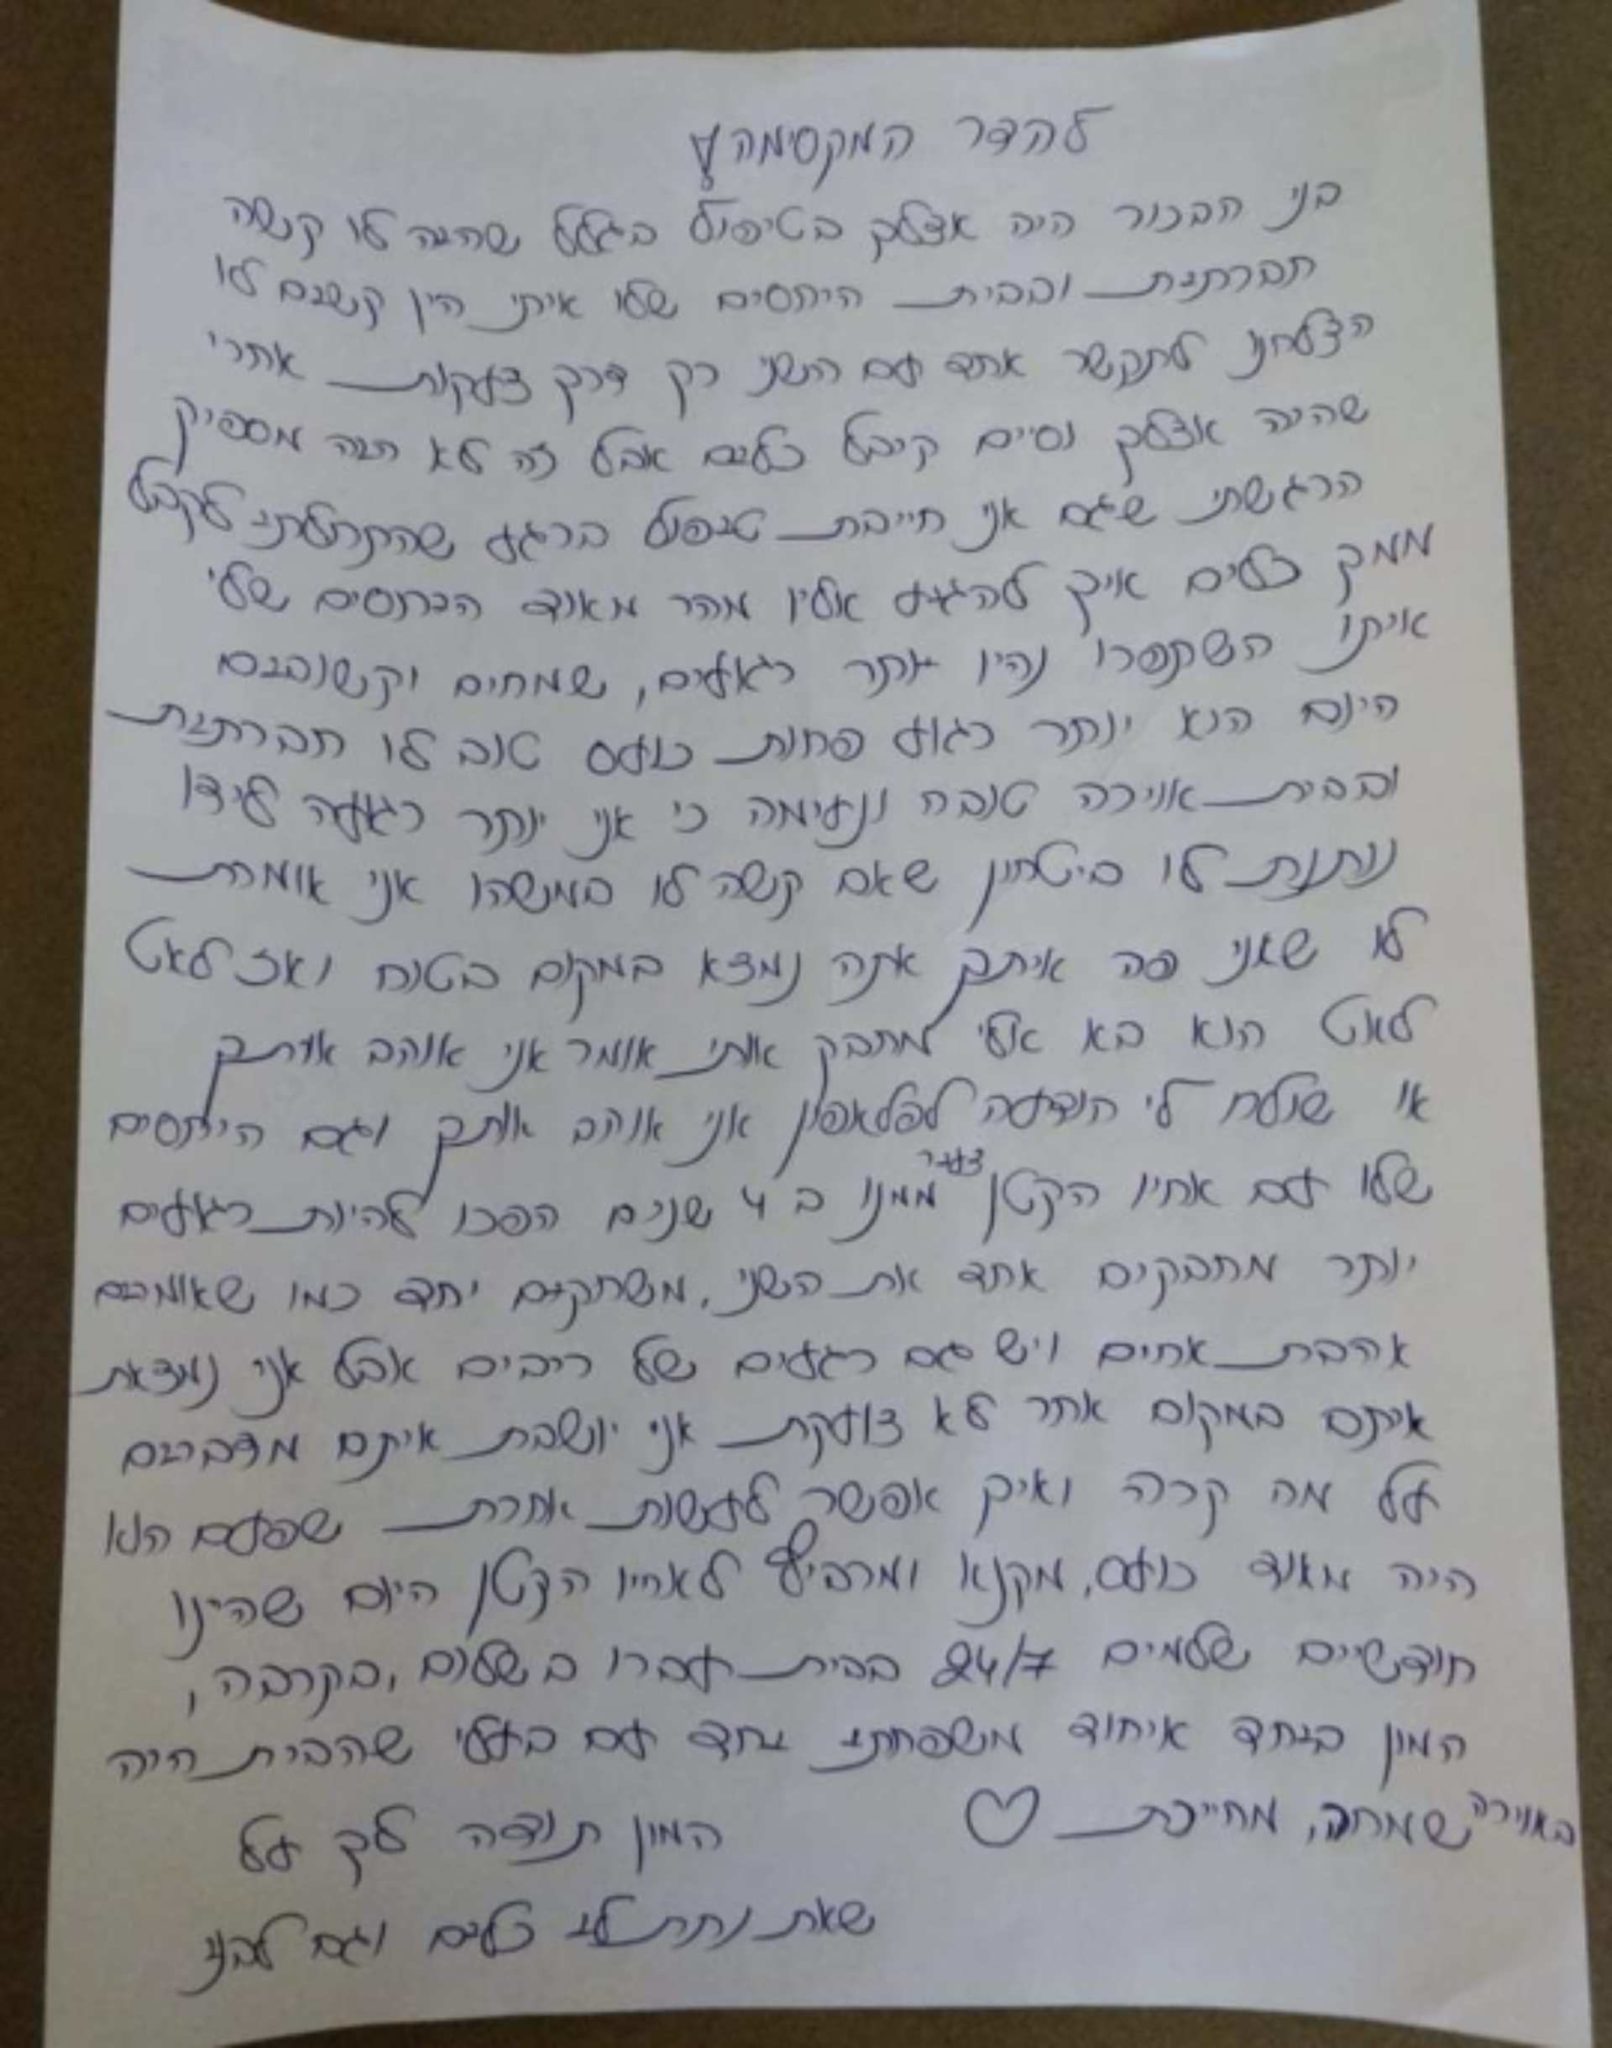 להדר המקסימה
בני הבכור היה אצלך בטיפול בגלל שהיה לו קשה
חברתית ובבית היחסים שלו איתי היו קשים לא
הצלחנו לתקשר אחד עם השני רק דרך צעקות אחרי
שהיה אצלך וסיים קיבל כלים אבל זה לא היה מספיק
הרגשתי שגם אני חייבת טיפול ברגע שהתחלתי לקבל
ממך כלים איך להגיע אליו מהר מאוד היחסים שלי
איתו השתפרו נהיו יותר רגועים, שמחים וקשובים
היום הוא יותר רגוע פחות כועס טוב לו חברתית
ובבית אוירה טובה ונעימה כי אני יותר רגועה לידו
נותנת לו ביטחון שאם קשה לו במשהו אני אומרת
לו שאני פה איתך אתה נמצא במקום בטוח ואז לאט
לאט הוא בא אלי מחבק אותי אומר אני אוהב אותך
או שולח לי הודעה לפלאפון אני אוהב אותך וגם היחסים
שלו עם אחיו הקטן צעיר ממנו ב 4 שנים הפכו להיות רגועים
יותר מחבקים אחד את השני, משחקים יחד כמו שאומרים
אהבת אחים ויש גם רגעים של ריבים אבל אני נמצאת
איתם במקום אחר לא צועקת אני יושבת איתם מדברים
על מה קרה ואיך אפשר לעשות אחרת שפעם הוא
היה מאוד כועס, מקנא ומרביץ לאחיו הקטן היום שהינו
חודשיים שלמים 24/7 בבית עברו בשלום, בקרבה,
המון ביחד איחוד משפחתי יחד עם בעלי שהבית היה
באוירה שמחה, מחייכת ♡
המון תודה לך על
שאת נתת לי כלים וגם לבני